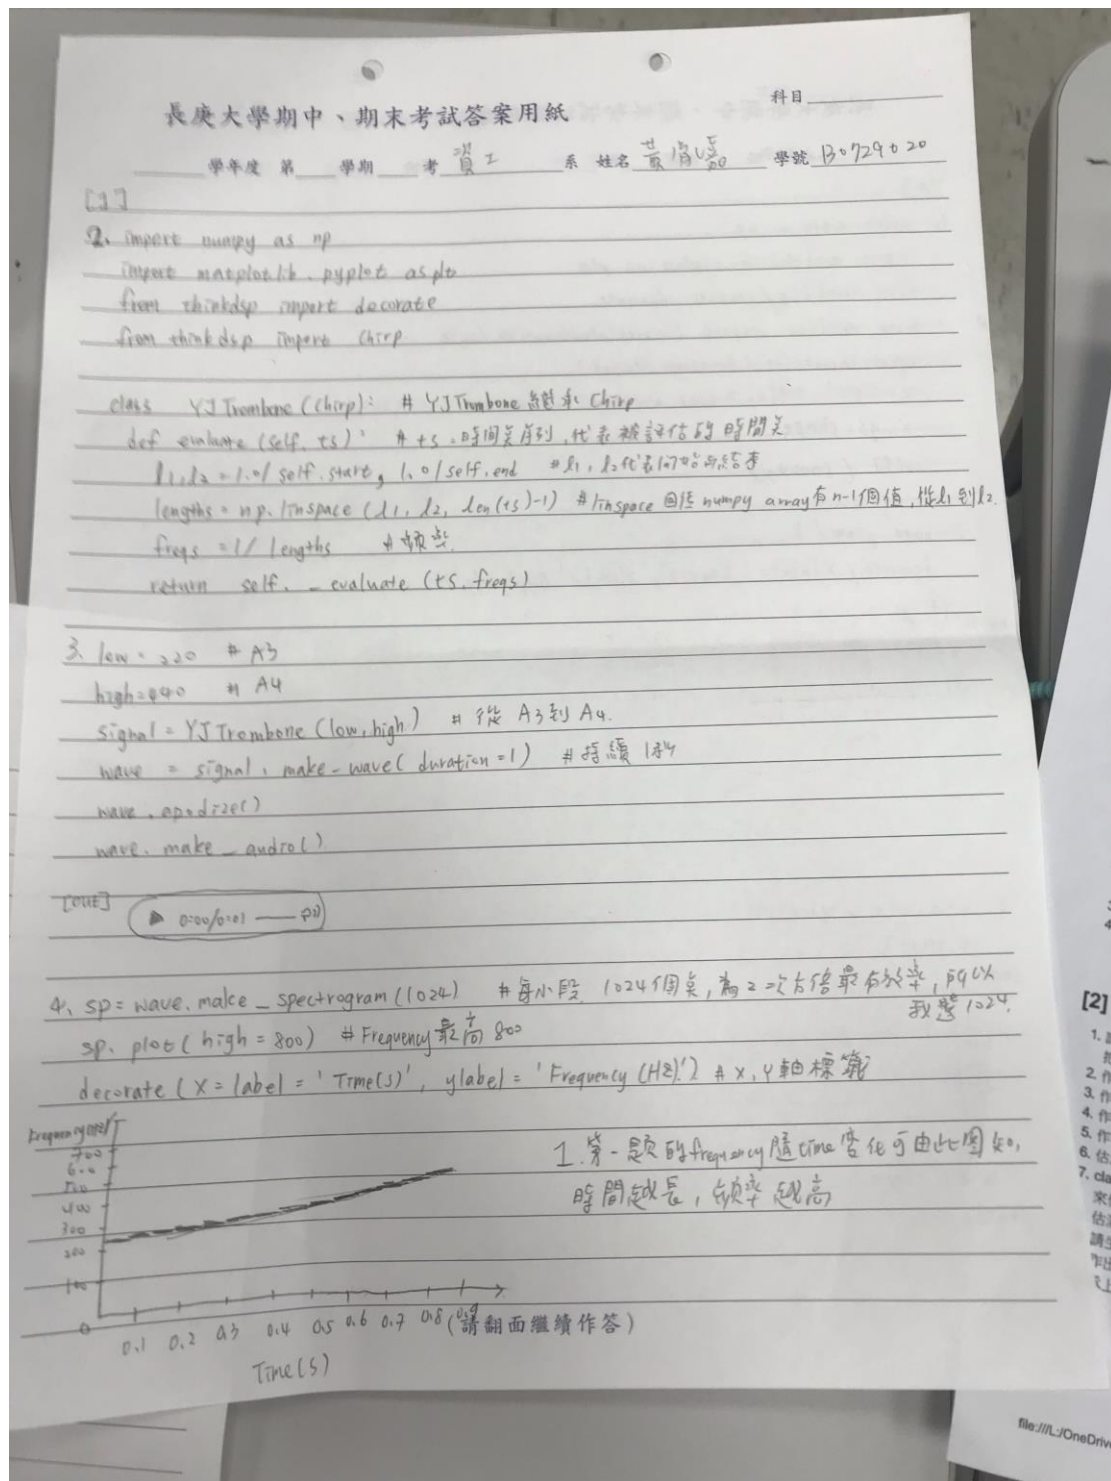 長庚大學期中、期末考試答案用紙
科目
學年度 第 學期 考 資工 系 姓名 黃 學號 B0729020
[1]
2. import numpy as np
import matplotlib.pyplot as plt
from thinkdsp import decorate
from thinkdsp import Chirp
class YJTrombone(Chirp): # YJTrombone 繼承 Chirp
def evaluate(self, ts): # ts:時間序列,代表被評估的時間
l1, l2 = 1.0/self.start, 1.0/self.end # l1, l2代表開始與結束
lengths = np.linspace(l1, l2, len(ts)-1) # linspace 回徑 numpy array有n-1個值,從l1到l2.
freqs = 1/lengths # 頻率
return self._evaluate(ts, freqs)
3. low = 220 # A3
high=440 # A4
signal = YJTrombone(low, high) # 從 A3到 A4.
wave = signal.make_wave(duration=1) # 持續 1秒
wave.apodize()
wave.make_audio()
[OUT]
0:00/0:01
4. sp = wave.make_spectrogram(1024) # 每小段 1024個點,為2次方倍最有效率,所以
我選1024.
sp.plot(high=800) # Frequency最高 800
decorate(x=label='Time(s)', ylabel='Frequency(Hz)') # x,y軸標籤
Frequency(Hz)
700
600
500
400
300
200
100
0
1. 第一題的frequency隨time變化可由此圖知,
時間越長,頻率越高
0.1 0.2 0.3 0.4 0.5 0.6 0.7 0.8 0.9
(請翻面繼續作答)
Time(s)
[2]
1.
2. 作
3. 作
4. 作
5. 作
6. 估
7. cla
來
估
請
file:///L:/OneDriv